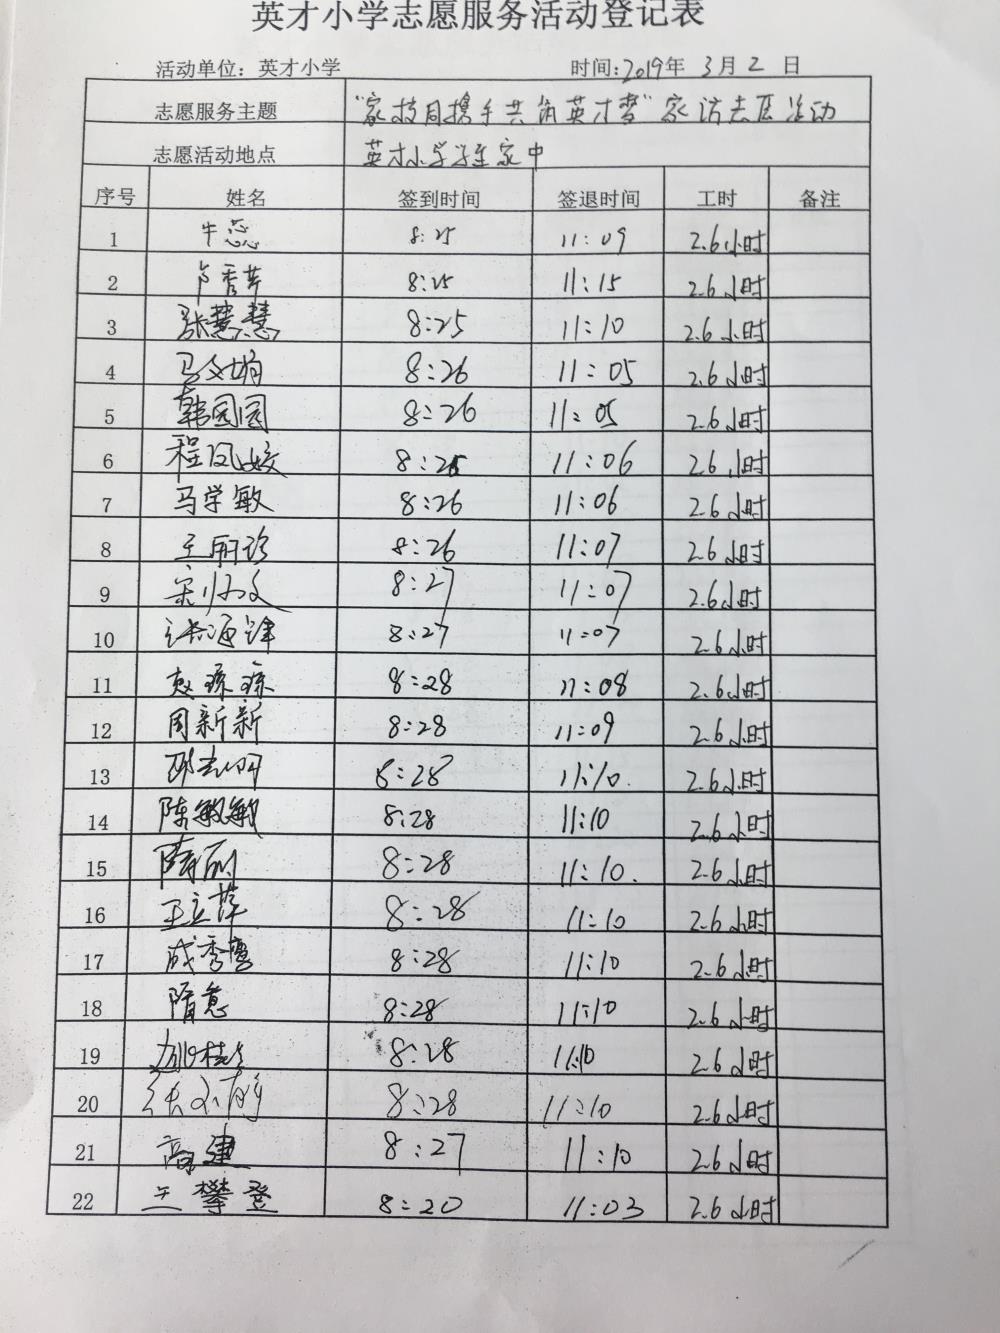 英才小学志愿服务活动登记表
活动单位：英才小学 时间：2019年 3月 2 日
志愿服务主题 "家校同携手共筑英才梦"家访志愿活动
志愿活动地点 英才小学学生家中
序号 姓名 签到时间 签退时间 工时 备注
1 牛蕊 8:25 11:09 2.6小时
2 卢秀苹 8:25 11:15 2.6小时
3 张慧慧 8:25 11:10 2.6小时
4 马文娟 8:26 11:05 2.6小时
5 韩园园 8:26 11:05 2.6小时
6 程凤姣 8:25 11:06 2.6小时
7 马学敏 8:26 11:06 2.6小时
8 王丽珍 8:26 11:07 2.6小时
9 8:27 11:07 2.6小时
10 8:27 11:07 2.6小时
11 赵琼琼 8:28 11:08 2.6小时
12 周新新 8:28 11:09 2.6小时
13 8:28 11:10. 2.6小时
14 陈敏敏 8:28 11:10 2.6小时
15 8:28 11:10. 2.6小时
16 王立萍 8:28 11:10 2.6小时
17 成秀 8:28 11:10 2.6小时
18 隋意 8:28 11:10 2.6小时
19 8:28 11:10 2.6小时
20 张小静 8:28 11:10 2.6小时
21 高建 8:27 11:10 2.6小时
22 王攀登 8:20 11:03 2.6小时